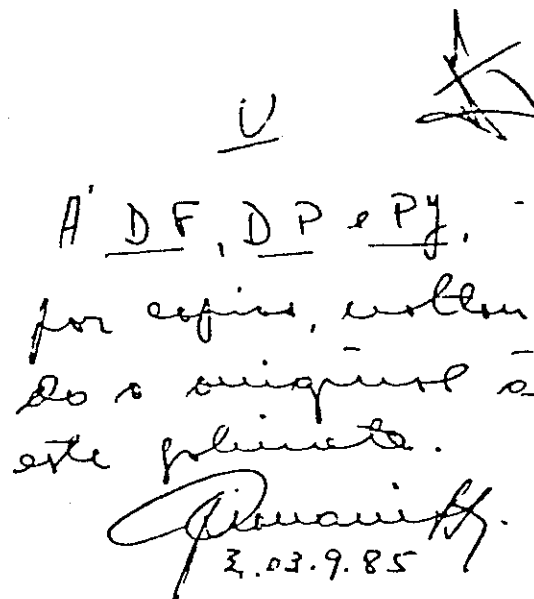 U
À DF, DP e PJ, -
por copias, voltan
do o original a
este gabinete.
3.03.9.85